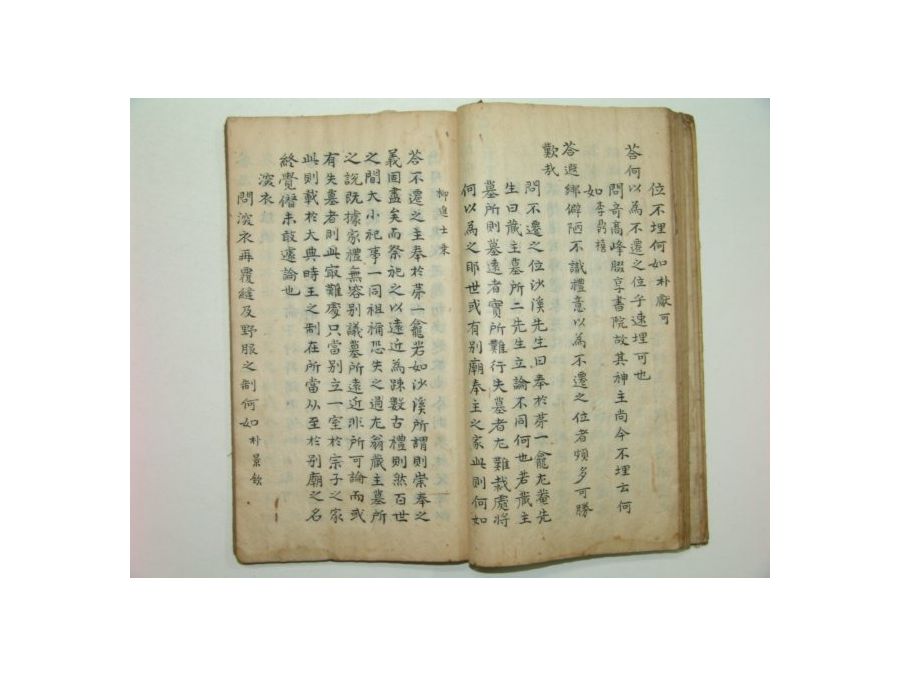 位不埋何如 朴獻可
答何以為不遷之位子速埋可也
問奇高峰腏享書院故其神主尚今不埋云何
如 李鼎禧
答遐鄉僻陋不識禮意以為不遷之位者頗多可勝
歎哉
問不遷之位沙溪先生曰奉於苐一龕尤菴先
生曰蔵主墓所二先生立論不同何也若蔵主
墓所則墓遠者實所難行失墓者尤難裁處將
何以為之耶世或有別廟奉主之家此則何如
柳進士
答不遷之主奉於苐一龕若如沙溪所謂則崇奉之
義固盡矣而祭祀之以遠近為疎數古禮則然百世
之間大小祀事一同祖禰恐失之過尤翁蔵主墓所
之說既據家禮無容別議墓所遠近非所可論而或
有失墓者則此㝡難處只當別立一室於宗子之家
此則載於大典時王之制在所當从至於別廟之名
終覺僭未敢遽論也
㴱衣
問㴱衣再覆縫及野服之制何如 朴景欽